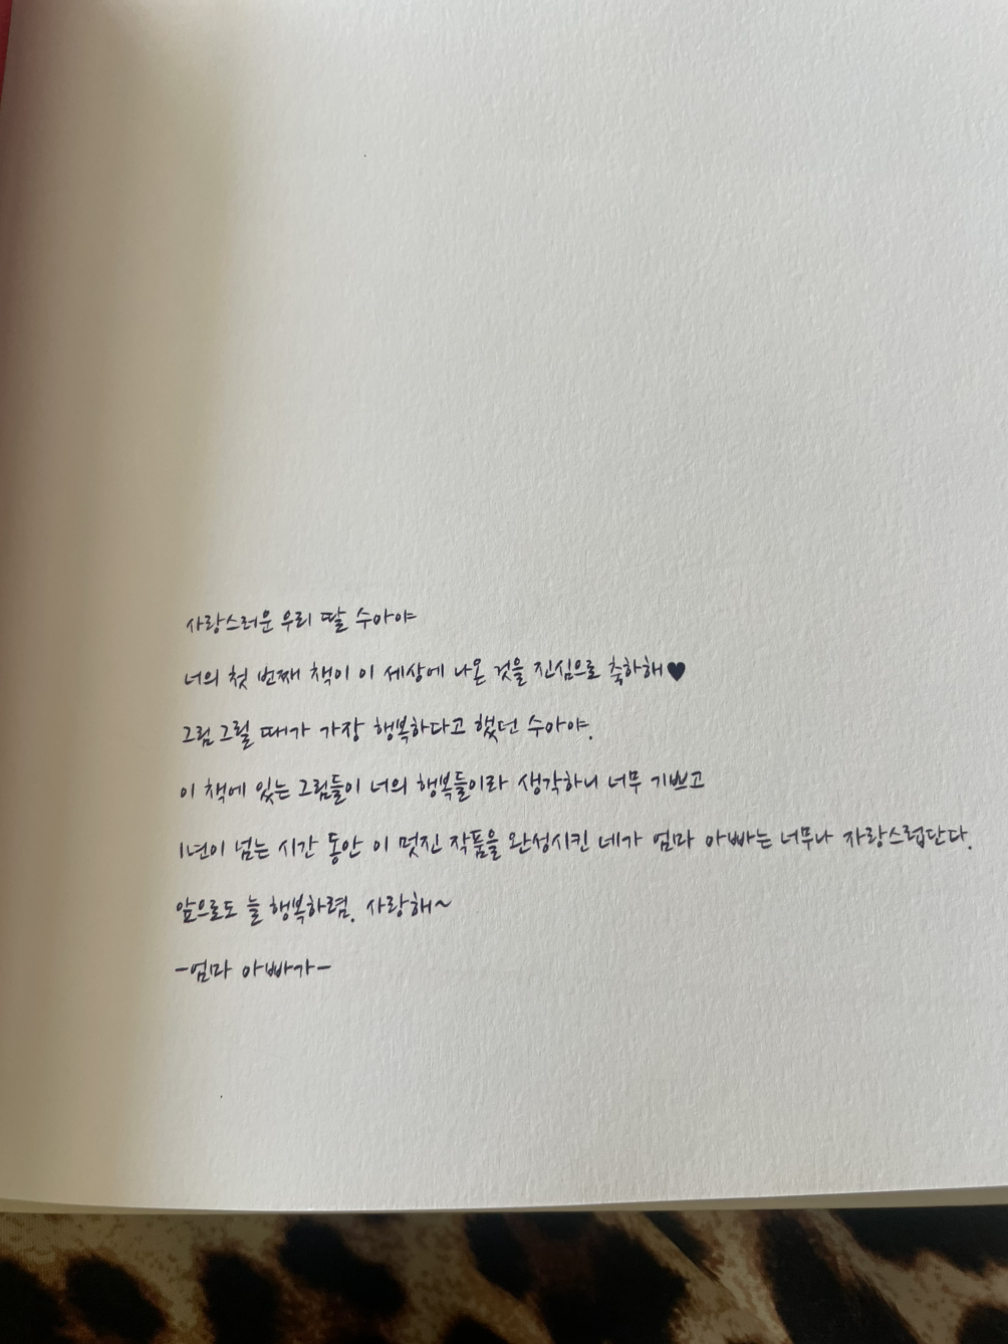 사랑스러운 우리 딸 수아야
너의 첫 번째 책이 이 세상에 나온 것을 진심으로 축하해♥
그림 그릴 때가 가장 행복하다고 했던 수아야.
이 책에 있는 그림들이 너의 행복들이라 생각하니 너무 기쁘고
1년이 넘는 시간 동안 이 멋진 작품을 완성시킨 네가 엄마 아빠는 너무나 자랑스럽단다.
앞으로도 늘 행복하렴. 사랑해~
-엄마 아빠가-